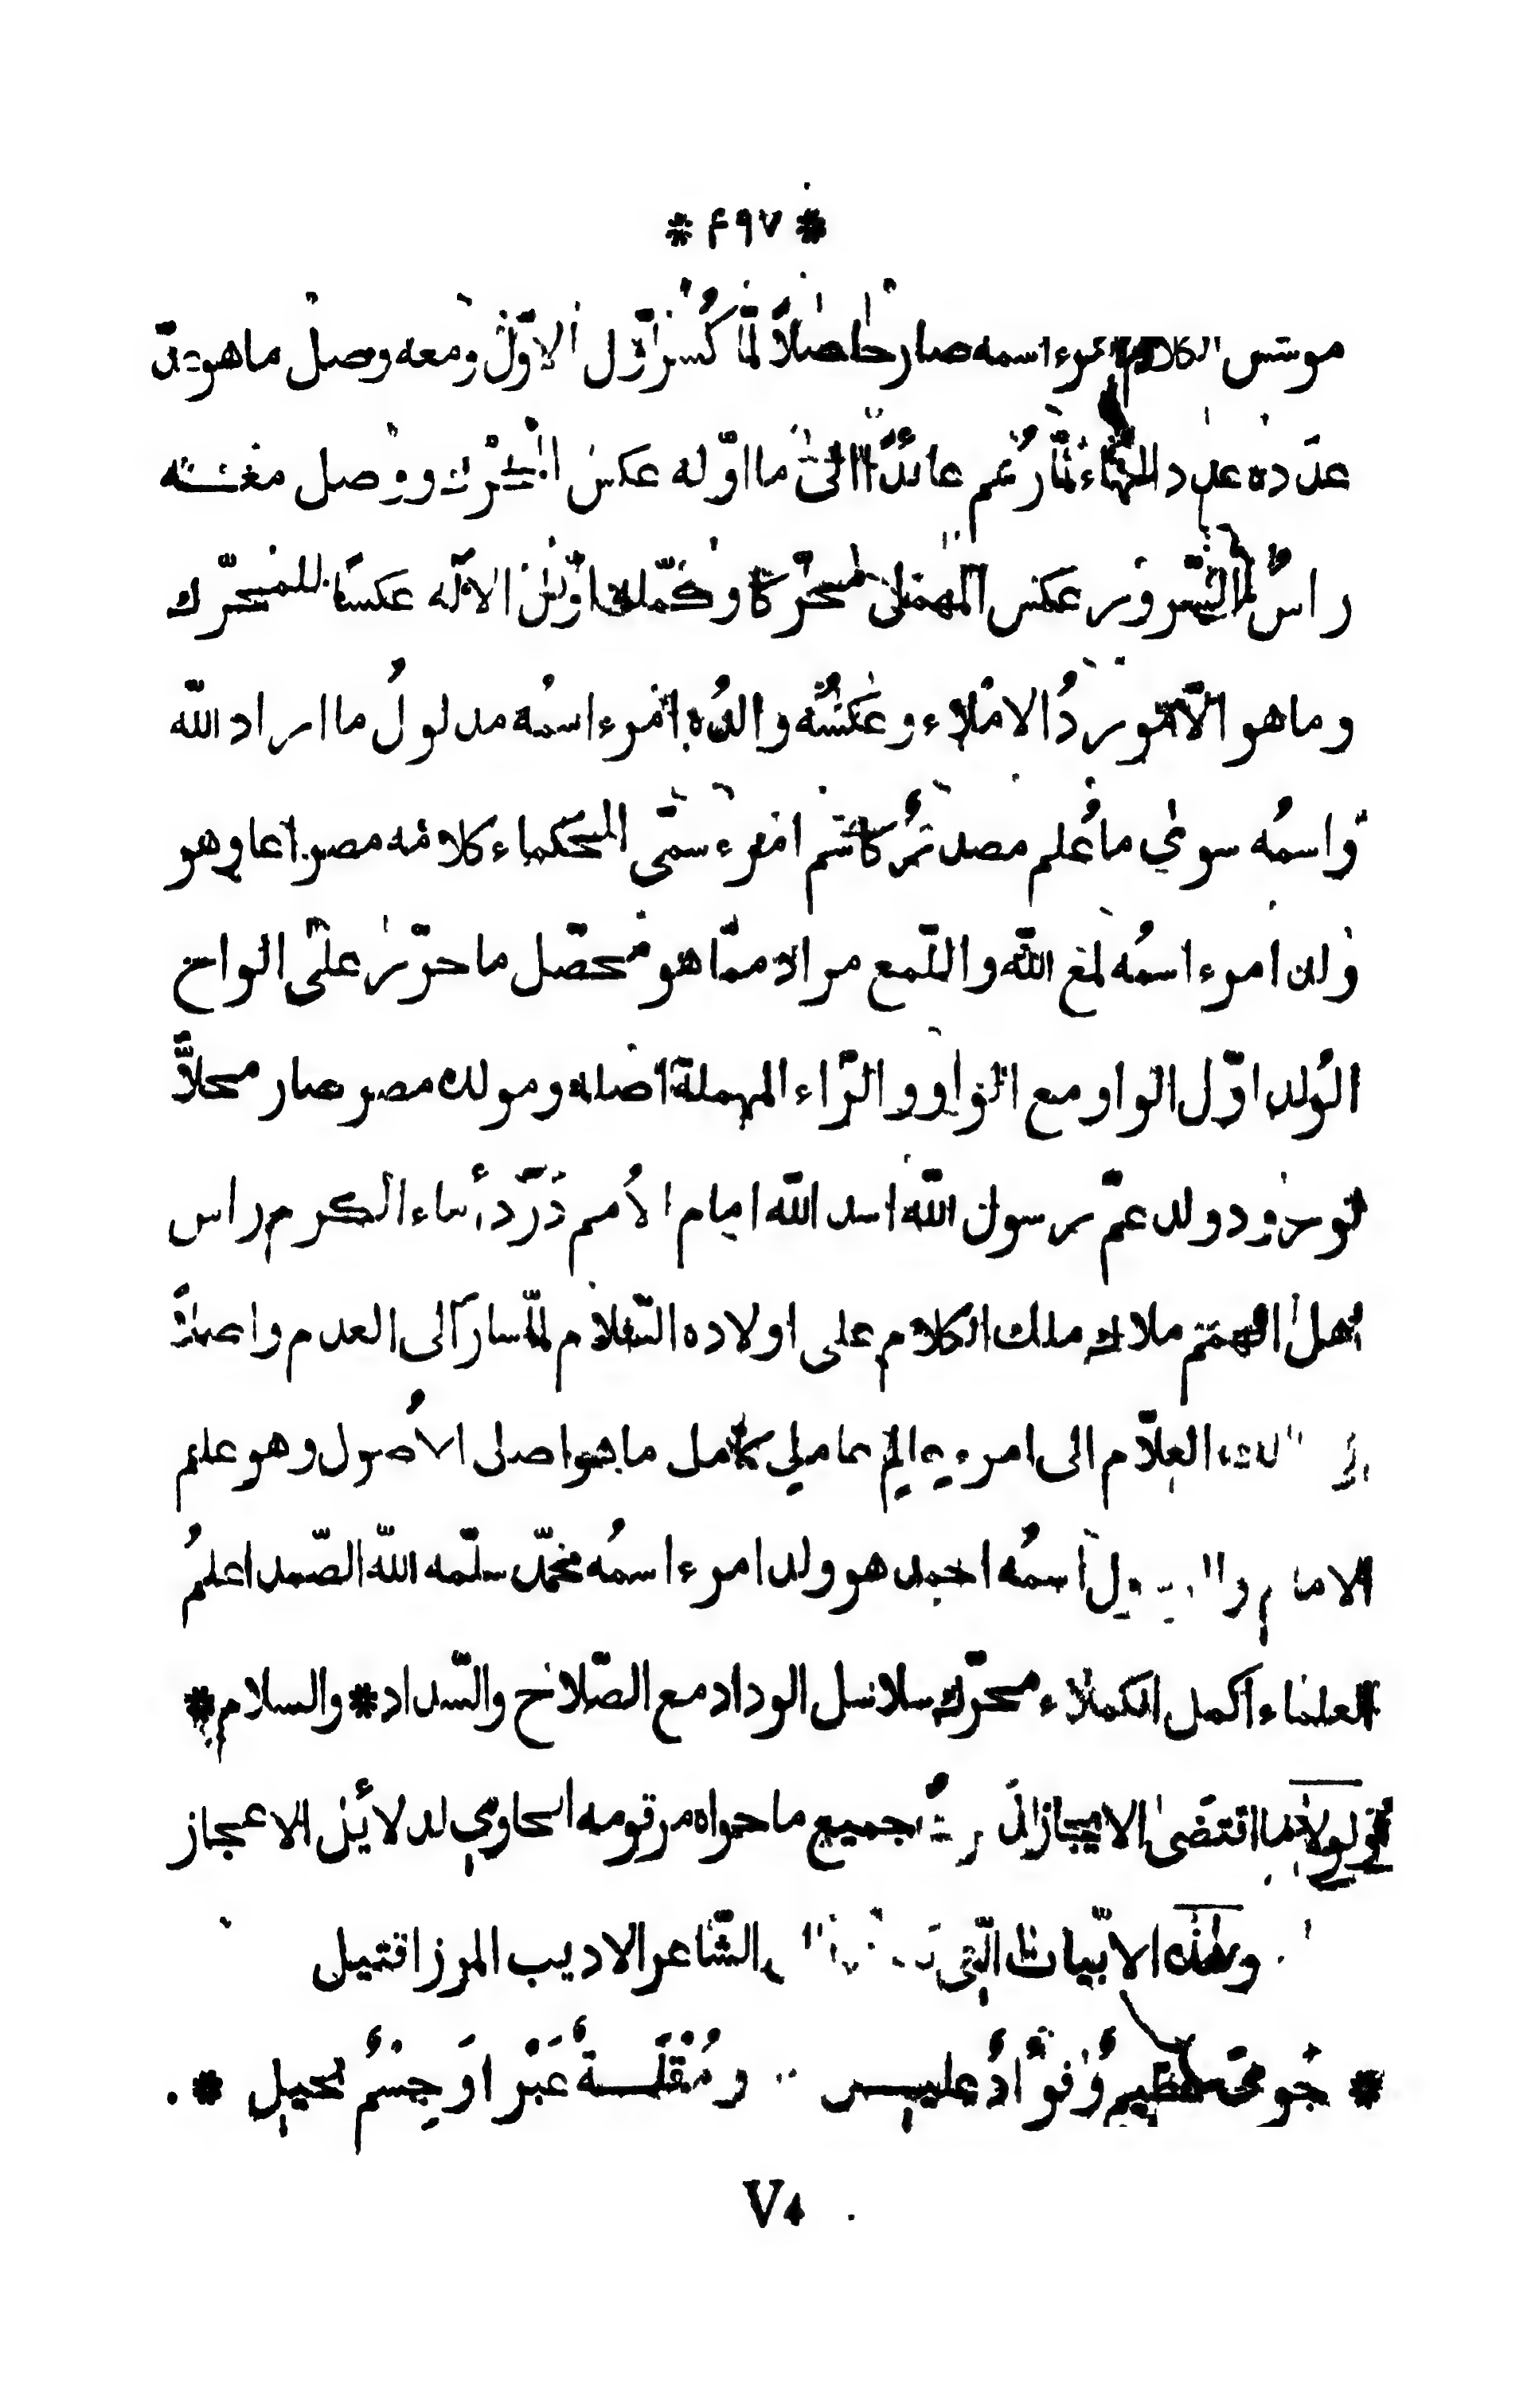 * ۴۹۷ *
موسّس الكلام امرء اسمه صار حاصلاً لمّا كُسر اوّل الاوّل ومعه وصل ما هو
عدده عدد الهاء لمّا رُسم عائدًا الى ما اوّله عكس ووصل معه
راسُ السرور عكس المهمل محرّكًا وكمّله اوّل الاله عكسًا للمحرّك
وما هو الّا مورد الاملاء وعكسُه والدُه امرء اسمُه مدلولُ ما اراد اللّه
واسمُه سوى ما عُلم مصدرٌ كاسم امرء سمّى الحكماء كلامه مصراعا وهو
ولد امرء اسمُه لمع اللّه واللّمع مراد ممّا هو محصّل ما حرّر على الواح
الولد اوّل الواو مع الواو والرّاء المهملة اصله ومولده مصر صار محلاًّ
لورود ولد عمّ رسول اللّه اسد اللّه امام الأمم درّ دأماء الكرم راس
اهل الهمم ملاك ملك الكلام على اولاده السّلام لمّا سار الى العدم واصلاً
العلّام الى امرء عالم عامل كامل ما هو اصل الاُصول وهو علم
الامام اسمُه احمد هو ولد امرء اسمُه محمّد سلّمه اللّه الصّمد اعلمُ
العلماء اكمل الكملاء محرّك سلاسل الوداد مع الصّلاح والسّداد * والسلام *
ولولا ما اقتضى الايجاز جميع ما حواه مرقومه الحاوي لدلائل الاعجاز
وهذه الابيات الّتى الشّاعر الاديب المرزا قتيل
* جوىً عظيمٌ وفوادٌ عليل ومُقلةٌ عَبْرا وَجِسمٌ نحيل *
V٤